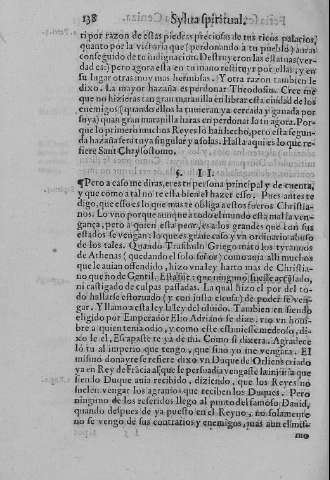 138 Sylua spiritual.
ti por razon de estas piedras preciosas de tus ricos palacios,
quanto por la victoria que (perdonando a tu pueblo) auras
conseguido de tu indignacion. Destruyeron las estatuas (verdad
es:) pero agora esta en tu mano restituyr por ellas, y en
su lugar otras muy mas hermosas. Y otra razon tambien le
dixo. La mayor hazaña es perdonar Theodosio. Cree me
que no hizieras tan gran marauilla en librar esta ciudad de los
enemigos (quando ellos la tuuieran ya cercada y ganada por
suya) quan gran marauilla haras en perdonarla tu agora. Porque
lo primero muchos Reyes lo han hecho, pero esta segunda
hazaña sera tuya singular y a solas. Hasta aqui es lo que refiere
Sant Chrysostomo.
§. II.
¶Pero a caso me diras, eres tu persona principal y de cuenta,
y que como a tal no te esta bien el hazer esso. Pues antes te
digo, que esso es lo que mas te obliga a estos fueros Christianos.
Lo vno porque aunque a todo el mundo esta mal la vengança,
pero a quien esta peor, es a los grandes que con sus
estados se vengan: lo que es graue caso y va ordinario abuso
de los tales. Quando Trasibulo Griego mato los tyrannos
de Athenas (quedando el solo señor) como auia alli muchos
que le auian offendido, hizo vna ley harto mas de Christiano
que no de Gentil. Esta fue: que ninguno fuesse accusado,
ni castigado de culpas passadas. La qual hizo el por del todo
hallarse estoruado (y con justa escusa) de poderse vengar.
Y llamose esta ley la ley del oluido. Tambien en siendo
eligido por Emperador Elio Adriano se dize: vio vn hombre
a quien tenia odio, y como este estuuiesse medroso, dixo
le el, Escapaste te ya de mi. Como si dixera. Agradece
lo tu al imperio que tengo, que sino yo me vengara. El
mismo donayre se refiere dixo vn Duque de Orliens criado
ya en Rey de Frãcia al que le persuadia vengasse la injuria que
siendo Duque auia recibido, diziendo, que los Reyes no
suelen vengar los agrauios que reciben los Duques. Pero
ninguno de los referidos llego al punto del famoso Dauid,
quando despues de ya puesto en el Reyno, no solamente
no se vengo de sus contrarios y enemigos, mas aun el mismo
mo